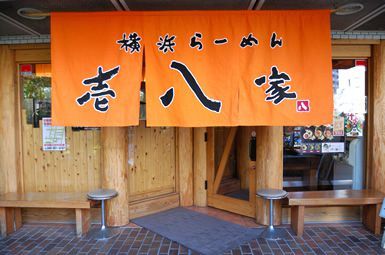 横浜らーめん
壱八家
八